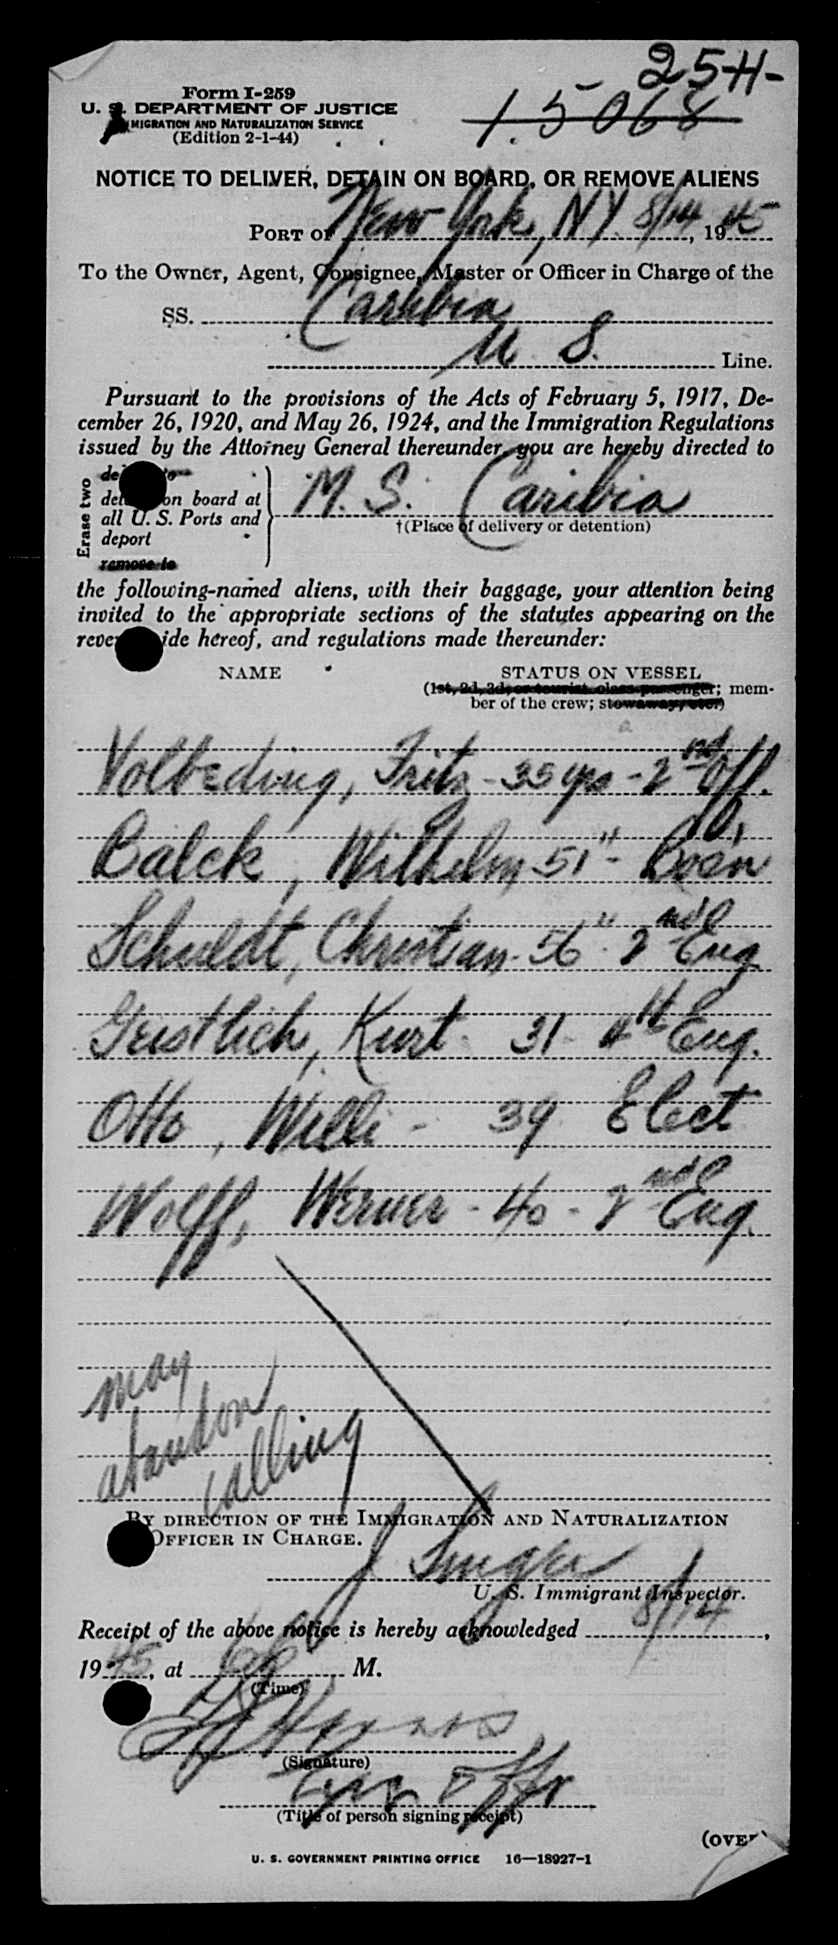 25-H-
1.5068
Form I-259
U. S. DEPARTMENT OF JUSTICE
IMMIGRATION AND NATURALIZATION SERVICE
(Edition 2-1-44)
NOTICE TO DELIVER, DETAIN ON BOARD, OR REMOVE ALIENS
PORT OF New York, NY. 8/14, 1945
To the Owner, Agent, Consignee, Master or Officer in Charge of the
SS. Caribia
U. S. Line.
Pursuant to the provisions of the Acts of February 5, 1917, De-
cember 26, 1920, and May 26, 1924, and the Immigration Regulations
issued by the Attorney General thereunder, you are hereby directed to
Erase two
on board at
all U. S. Ports and
deport
remove to
M. S. Caribia
†(Place of delivery or detention)
the following-named aliens, with their baggage, your attention being
invited to the appropriate sections of the statutes appearing on the
reverse side hereof, and regulations made thereunder:
NAME STATUS ON VESSEL
(1st, 2d, 3d, or tourist class passenger; mem-
ber of the crew; stowaway, etc.)
Volbeding, Fritz - 35 yrs - 2nd Off.
Balck, Wilhelm - 51 " - Bos'n
Schuldt, Christian - 56 " - 2nd Eng
Geistlich, Kurt - 31 - 4th Eng.
Otto, Willi - 39 Elect
Wolff, Werner - 40 - 2nd Eng.
may
abandon
calling
BY DIRECTION OF THE IMMIGRATION AND NATURALIZATION
OFFICER IN CHARGE.
J Singer
U. S. Immigrant Inspector.
Receipt of the above notice is hereby acknowledged 8/14,
1945, at M.
(Time)
(Signature)
(Title of person signing receipt)
(OVER)
U. S. GOVERNMENT PRINTING OFFICE 16—18927-1